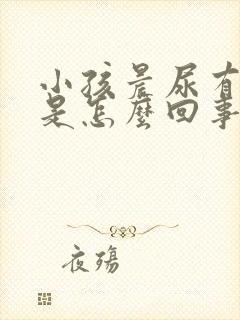 小孩晨尿有
是怎麼回事
夜殤